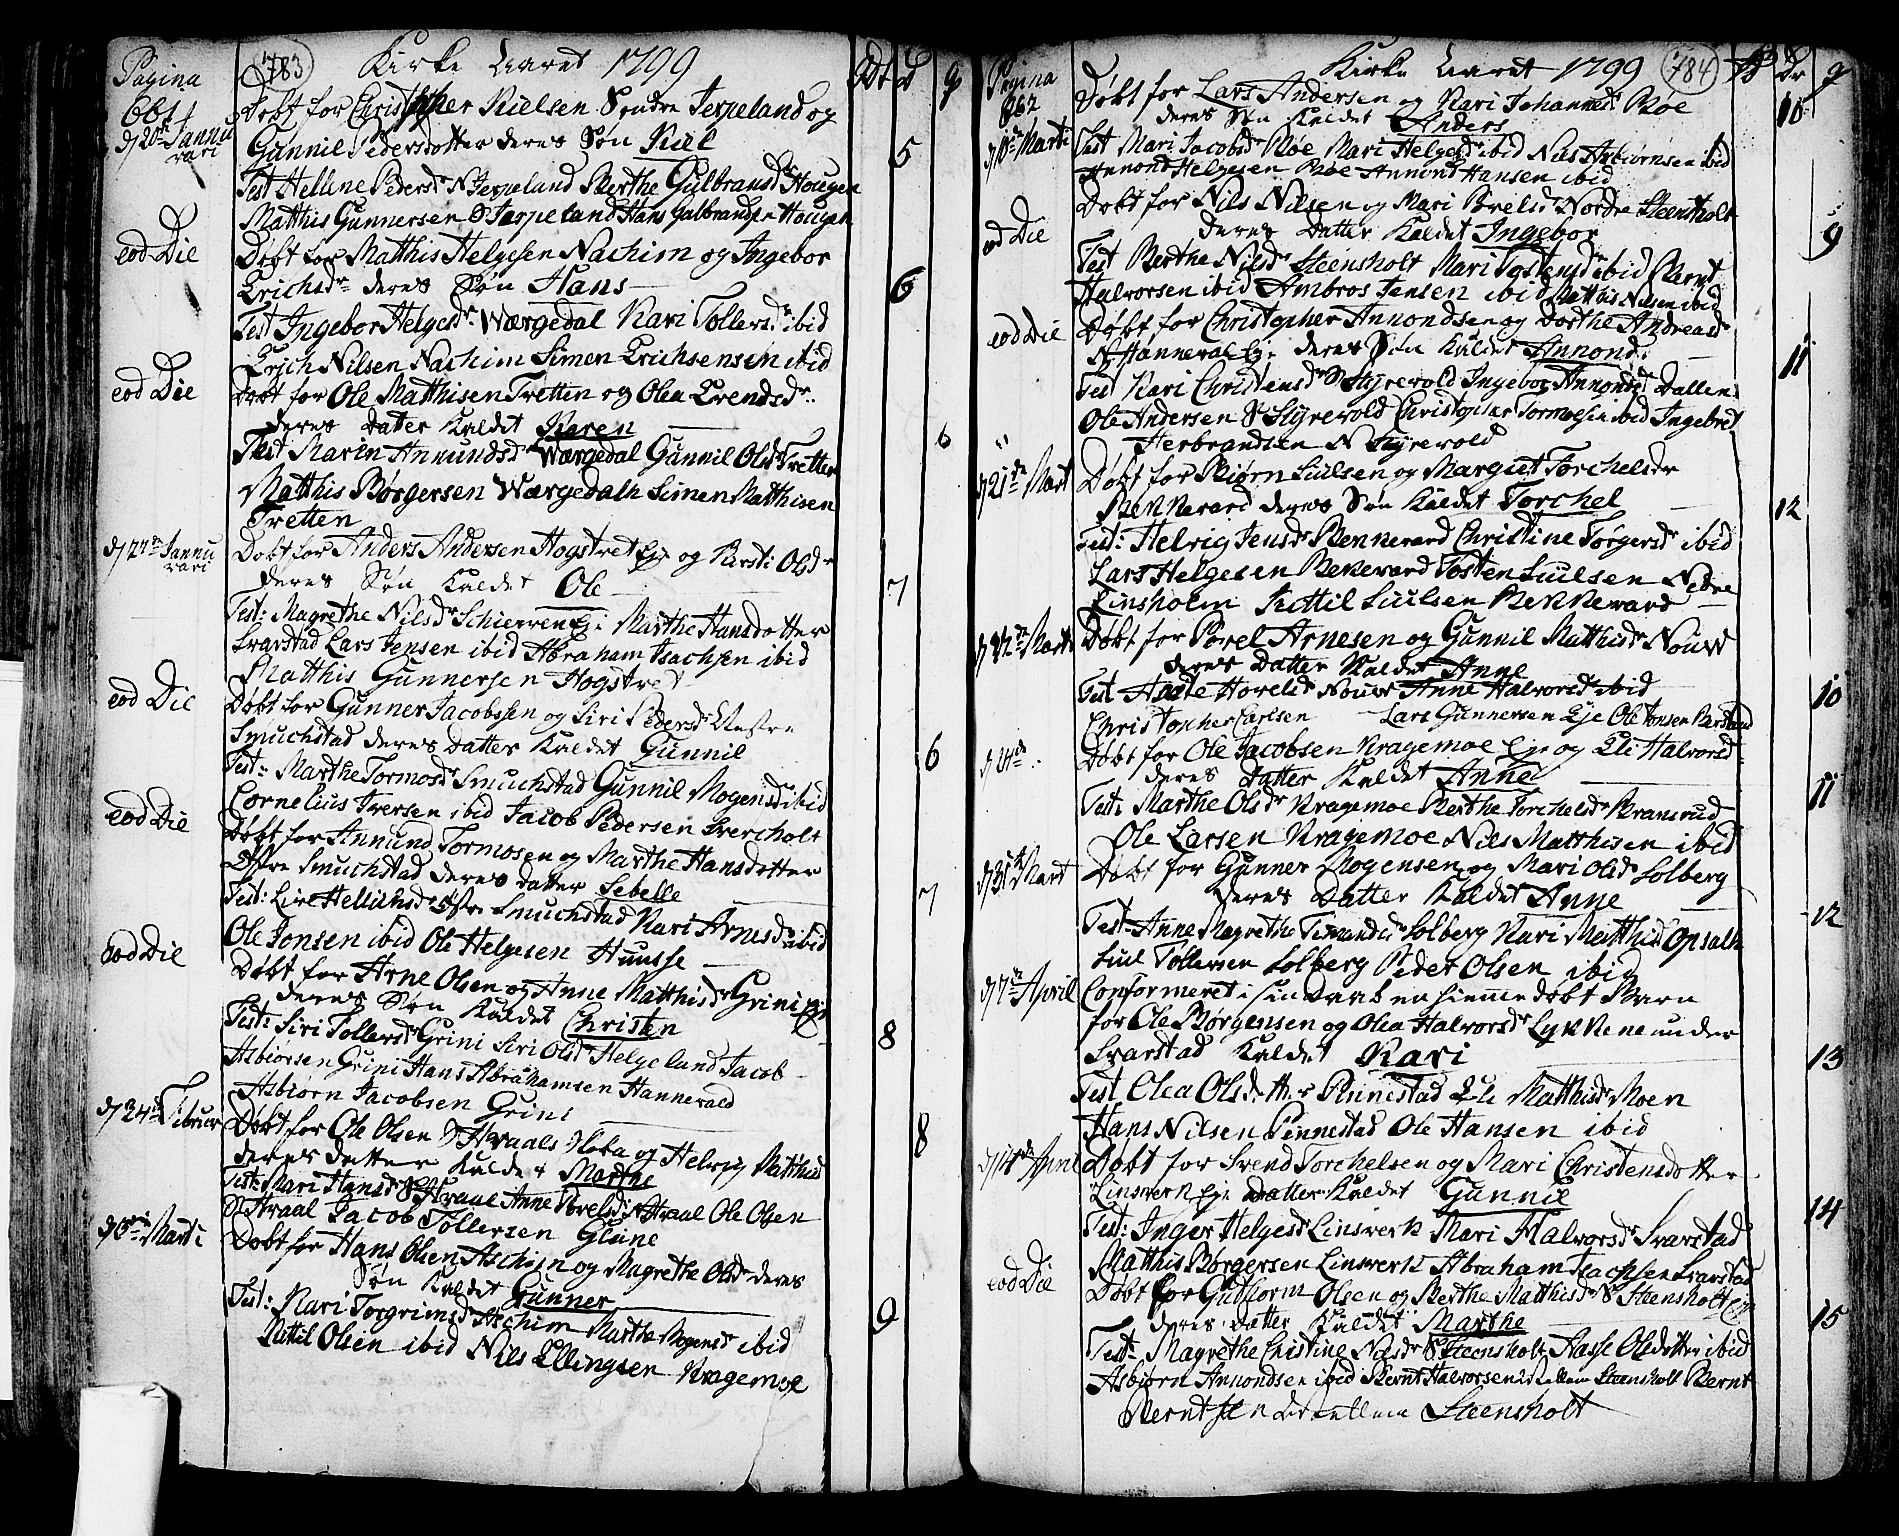 Pagina
661
783
Kirke Aaret 1799
d 20de Jannu
rari
Døbt for Christopher Nielsen Søndre Jerpeland og
Gunnil Pedersdotter deres Søn Juel
5
Test Hellene Pedersdr N Jerpeland Berthe Gulbransdr Hougen
Matthis Gunnersen S Jerpeland Hans Gulbransen Hougen
eod Die
Døbt for Matthis Helgesen Nachim og Ingebor
Erichsdr deres Søn Hans
6
Test Ingebor Helgesdr Wærgedal Kari Tollersdr ibid
Erich Nilsen Nachim Simen Erichsensen ibid
eod Die
Døbt for Ole Matthisen Tretten og Olea Trendsdr
deres Datter Kaldet Karen
6
Test Maren Anmundsdr Wærgedal Gunnil Olsdr Tretten
Matthis Børgersen Wærgedahl Simen Matthisen
Tretten
d 27de Jannu
rari
Døbt for Anders Andersen Hogstret Eje og Kirsti Olsdr
deres Søn Kaldet Ole
7
Test: Magrethe Nilsdr Schierven Eje Marthe Hansdotter
Svarstad Lars Jensen ibid Abraham Isachsen ibid
Matthis Gunnersen Hogstret
eod Die
Døbt for Gunner Jacobsen og Siri Pedersdr Vestre
Smuchstad deres Datter Kaldet Gunnil
6
Test: Marthe Tormosdr Smuchstad Gunnil Mogensdr ibid
Cornelius Iversen ibid Jacob Pedersen Svercholt
eod Die
Døbt for Annund Tormosen og Marthe Hansdotter
Østre Smuchstad deres Datter Sebelle
7
Test: Live Hellichsdr Østre Smuchstad Kari Arnesdr ibid
Ole Jonsen ibid Ole Helgesen Huusse
eod Die
Døbt for Arne Olsen og Anne Matthisdr Grini Eje
deres Søn Kaldet Christen
8
Test: Siri Tollersdr Grini Siri Olsdr Helgeland Jacob
Asbiørsen Grini Hans Abrahamsen Hannevald
Asbiørn Jacobsen Grini
d 24de Februar
Døbt for Ole Olsen S Hraals Hoba og Helvig Matthisdr
deres Datter Kaldet Marthe
8
Test: Mari Hansdr S Hraal Anne Povelsdr N Hraal Ole Olsen
S Hraal Jacob Tollersen Glüne
d 3die Marti
Døbt for Hans Olsen Aschim og Magrethe Olsdr deres
Søn Kaldet Gunner
9
Test: Kari Torgrimsdr Aschim Marthe Mogensdr ibid
Kittil Olsen ibid Nils Ellingsen Kragemoe
Pagina
662
Kirke Aaret 1799
784
d 10de Marti
Døbt for Lars Andersen og Kari Johannesdr Bøe
deres Søn Kaldet Anders
10
Test Mari Jacobsdr Boe Mari Helgesdr ibid Nils Asbiørnsen ibid
Annond Helgesen Boe Annond Hansen ibid
eod Die
Døbt for Nils Nilsen og Mari Brelsdr Nordre Steensholt
deres Datter Kaldet Ingebor
9
Test Berthe Nilsdr Steensholt Mari Tostensdr ibid Bernt
Halvorsen ibid Ambros Jensen ibid Matthis Nilsen ibid
eod Die
Døbt for Christopher Annondsen og Dorthe Andreasdr
N Hanneval Eje deres Søn Kaldet Annond
11
Test Kari Christensdr S Styrevold Ingebor Annondsdr Dallen
Ole Andersen S Styrevold Christopher Tormosen ibid Ingebret
Herbrandsen N Styrevold
d 21de Mart
Døbt for Biørn Siulsen og Margret Torchelsdr
Bekkevard deres Søn Kaldet Torchel
12
Test: Helvig Jensdr Bennevard Christine Torgersdr ibid
Lars Helgesen Bekevard Tosten Siulsen Nedre
Linsholm Kittil Siulsen Bekkevard
d 22de Marti
Døbt for Povel Arnesen og Gunnil Matthisdr Nouw
deres Datter Kaldet Anne
10
Test Aaste Hovelsdr Nouw Anne Halvorsdr ibid
Christopher Carlsen Lars Gunnersen Eje Ole Jonsen Barstand
d 24de
Døbt for Ole Jacobsen Kragemoe Eje og Eli Halvorsdr
deres Datter Kaldet Anne
11
Test: Marthe Olsdr Kragemoe Berthe Torchelsdr Bransrud
Ole Larsen Kragemoe Nils Matthisen ibid
d 31te Mart
Døbt for Gunner Mogensen og Mari Olsdr Solberg
deres Datter Kaldet Anne
12
Test Anne Magrethe Solberg Kari Matthisdr Opsalh
Siul Tollersen Solberg Peder Olsen ibid
d 7de April
Conformeret i sin Daab en hiemmedøbt Barn
for Ole Børgensen og Olea Halvorsdr Lykkene under
Svarstad Kaldet Kari
13
Test Olea Olsdr Pennestad Eli Matthisdr Moen
Hans Nilsen Pennestad Ole Hansen ibid
d 14de April
Døbt for Svend Torchelsen og Mari Christensdotter
Linsverk Eje Datter Kaldet Gunnil
14
Test: Inger Helgesdr Linsverk Mari Halvorsdr Svarstad
Matthis Børgersen Linsverk Abraham Isachsen Svarstad
eod Die
Døbt for Gudsorm Olsen og Berthe Matthisdr S Steensholt Eje
deres Datter Kaldet Marthe
15
Test: Magrethe Cristine Næsdr S Steensholt Aasse Olsdotter ibid
Asbiørn Annondsen ibid Bernt Halvorsen Mellem Steensholt Bernt
Berntsen Mellem Steensholt